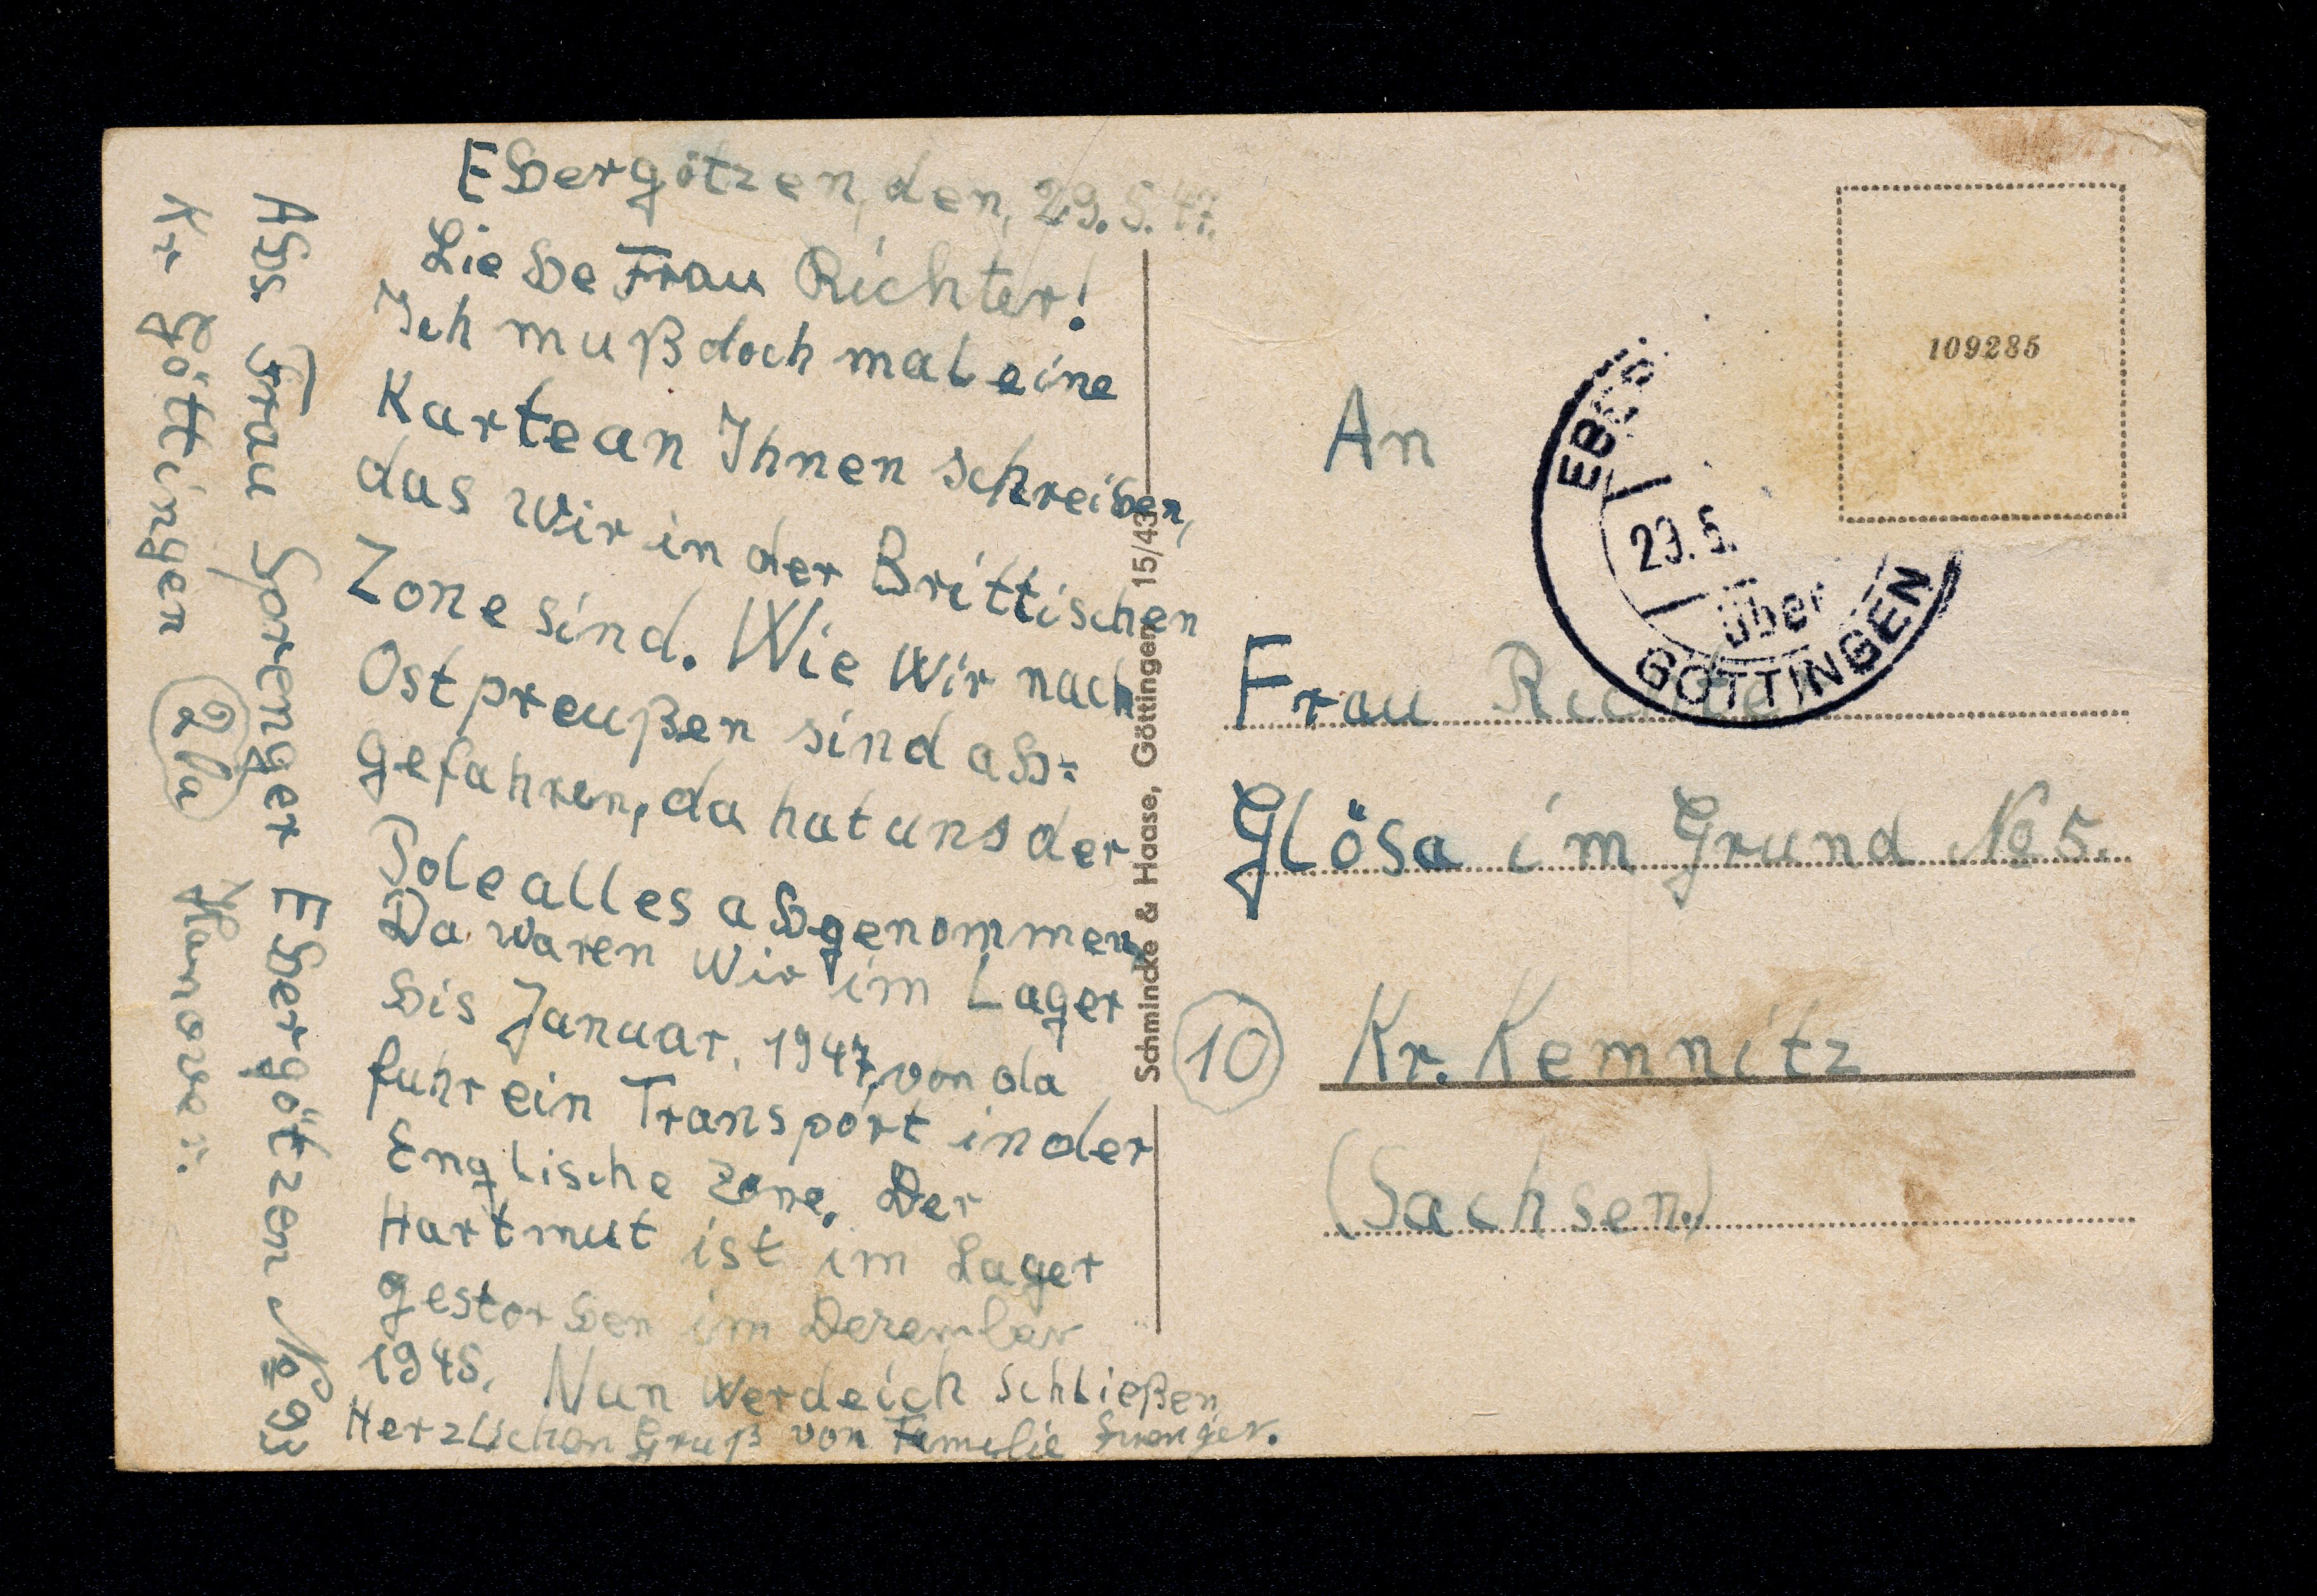 Ebergötzen, den, 29.5.47.
Liebe Frau Richter!
Ich muß doch mal eine
Karte an Ihnen schreiben,
das wir in der Brittischen
Zone sind. Wie wir nach
Ostpreußen sind ab=
gefahren, da hat uns der
Pole alles abgenommen,
Da waren wir im Lager
bis Januar, 1947, von da
fuhr ein Transport in der
Englische Zone. Der
Hartmut ist im Lager
gestorben im Dezember
1945. Nun werde ich schließen
Herzlichen Gruß von Familie Sprenger.
Abs Frau Sprenger Ebergötzen No 93
Kr Göttingen 21a Hannover:
Schmincke & Haase, Göttingen 15/43
109285
29.5.
über
GÖTTINGEN
An
Frau Richter
Glösa im Grund No 5.
10 Kr. Kemnitz
(Sachsen.)